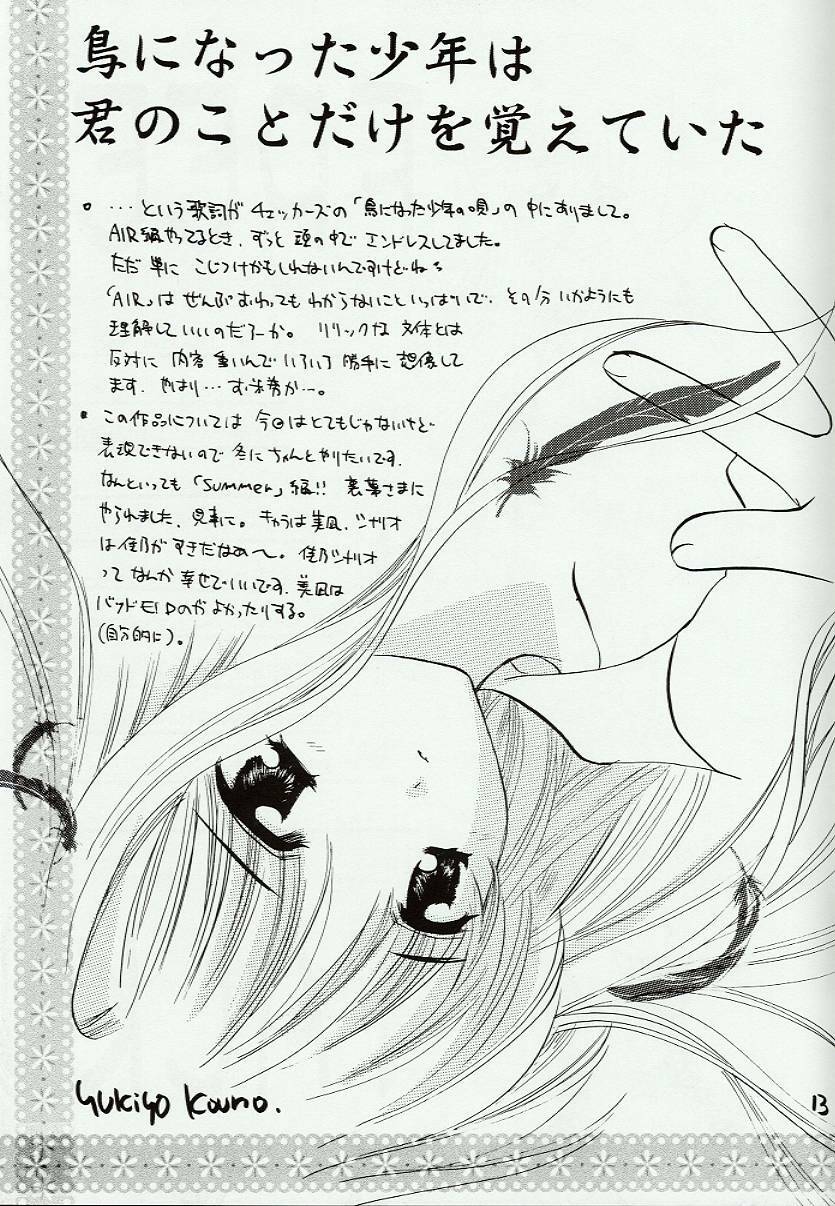 鳥になった少年は
君のことだけを覚えていた
・…という歌詞が チェッカーズの「鳥になった少年の唄」の中にありまして。
AIR編やってるとき、ずっと 頭の中で エンドレスしてました。
ただ単に こじつけかもしれないんですけどね
「AIR」は ぜんぶおわっても わからないこといっぱいで、その分いかようにも
理解していいのだろーか。 リリックな 文体とは
反対に 内容 重いんで いろいろ 勝手に 想像して
ます。やはり…
・この作品については 今回はとてもじゃないけど
表現できないので 冬にちゃんとやりたいです。
なんといっても「Summer」編!! 裏葉さまに
やられました、見事に。キャラは美凪、シナリオ
は佳乃がすきだなあ〜。 佳乃シナリオ
って なんか 幸せでいいです。美凪は
バッドENDのがよかったりする。
(自分的に)。
Yukiyo Kouno.
13